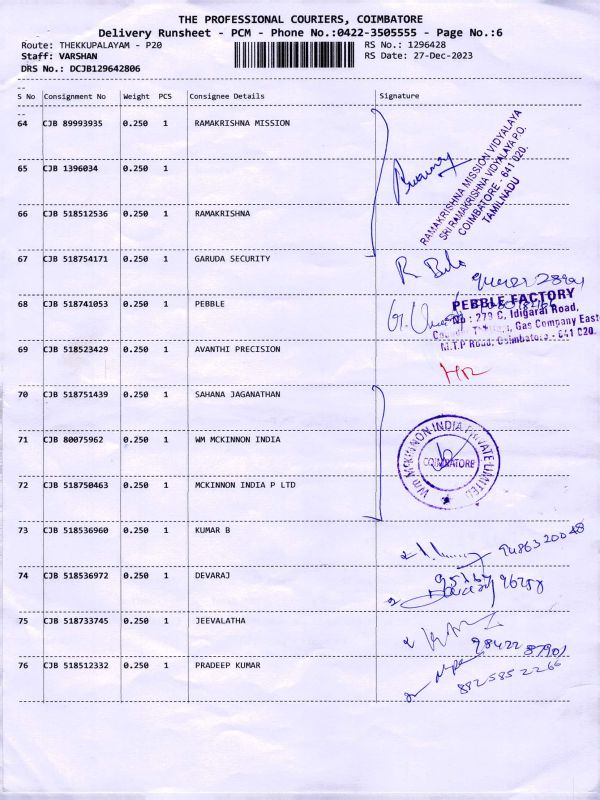 THE PROFESSIONAL COURIERS, COIMBATORE
Delivery Runsheet - PCM - Phone No.:0422-3505555 - Page No.:6
Route: THEKKUPALAYAM - P20 RS No.: 1296428
Staff: VARSHAN RS Date: 27-Dec-2023
DRS No.: DCJB129642806
--
S No Consignment No Weight PCS Consignee Details Signature
--
64 CJB 89993935 0.250 1 RAMAKRISHNA MISSION
RAMAKRISHNA MISSION VIDYALAYA
SRI RAMAKRISHNA VIDYALAYA P.O.
COIMBATORE - 641 020.
TAMILNADU
65 CJB 1396034 0.250 1
66 CJB 518512536 0.250 1 RAMAKRISHNA
67 CJB 518754171 0.250 1 GARUDA SECURITY
68 CJB 518741053 0.250 1 PEBBLE
PEBBLE FACTORY
No : 279 C, Idigarai Road,
Gas Company East
M.T.P Road, Coimbatore - 641 020.
69 CJB 518523429 0.250 1 AVANTHI PRECISION
HR
70 CJB 518751439 0.250 1 SAHANA JAGANATHAN
71 CJB 80075962 0.250 1 WM MCKINNON INDIA
W/o MCKINNON INDIA PRIVATE LIMITED
COIMBATORE
72 CJB 518750463 0.250 1 MCKINNON INDIA P LTD
73 CJB 518536960 0.250 1 KUMAR B
9486320048
74 CJB 518536972 0.250 1 DEVARAJ
75 CJB 518733745 0.250 1 JEEVALATHA
9842287901
76 CJB 518512332 0.250 1 PRADEEP KUMAR
8825852266